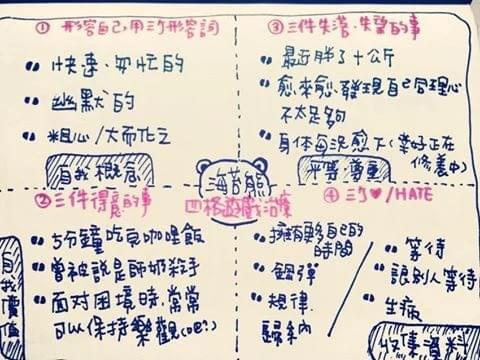 ① 形容自己,用三個形容詞
快速、匆忙的
幽默的
粗心/大而化之
自我概念
③ 三件失落、失望的事
最近胖了十公斤
愈來愈發現自己同理心
不太足夠
身体每況愈下(幸好正在
修養中)
平等 尊重
海苔熊
四格遊戲治療
② 三件得意的事
5分鐘吃完咖哩飯
曾被說是師奶殺手
面对困境時,常常
可以保持樂觀
自我價值
④ 三个♥/HATE
擁有更多自己的
時間
鋼彈
規律
歸納
等待
讓別人等待
生病
收集資料